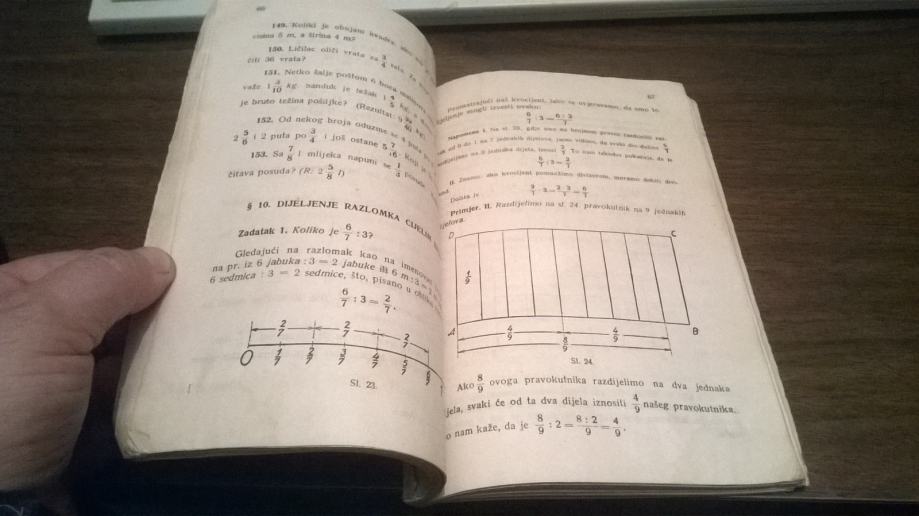 66
149. Koliki je obujam kvadra, ako
visina 5 m, a širina 4 m?
150. Ličilac oliči vrata za 3/4
čiti 36 vrata?
151. Netko šalje poštom 6
važe 1 3/10 kg, sanduk je težak 1 4/5 kg
je bruto težina pošiljke? (Rezultat: 9
152. Od nekog broja oduzme se
2 5/6 i 2 puta po 3/4 i još ostane 5
153. Sa 7/8 l mlijeka napuni se 1/3 posude
čitava posuda? (R: 2 5/8 l)
§ 10. DIJELJENJE RAZLOMKA CIJELIM
Zadatak 1. Koliko je 6/7 : 3?
Gledajući na razlomak kao na
na pr. iz 6 jabuka : 3 = 2 jabuke ili 6 m : 3 = 2
6 sedmica : 3 = 2 sedmice, što, pisano u
6/7 : 3 = 2/7.
2/7 2/7 2/7
O 1/7 2/7 3/7 4/7 5/7 6/7
Sl. 23.
67
Promatrajući naš kvocijent, lako se uvjeravamo, da smo
mogli izvesti ovako:
6/7 : 3 = 6 : 3/7
Napomena I. Na sl. 23, gdje smo na brojnom pravcu
od 0 do 1 na 7 jednakih dijelova, jasno vidimo, da
na 3 jednaka dijela, iznosi 2/7. To nam također pokazuje, da je
6/7 : 3 = 2/7
II. Znamo: ako kvocijent pomnožimo divizorom, moramo dobiti
Doista je
2/7 · 3 = 2 · 3/7 = 6/7
Primjer. II. Razdijelimo na sl. 24. pravokutnik na 9 jednakih
dijelova.
D C
1/9
A B
4/9 4/9
8/9
Sl. 24.
Ako 8/9 ovoga pravokutnika razdijelimo na dva jednaka
jela, svaki će od ta dva dijela iznositi 4/9 našeg pravokutnika.
o nam kaže, da je 8/9 : 2 = 8 : 2/9 = 4/9.